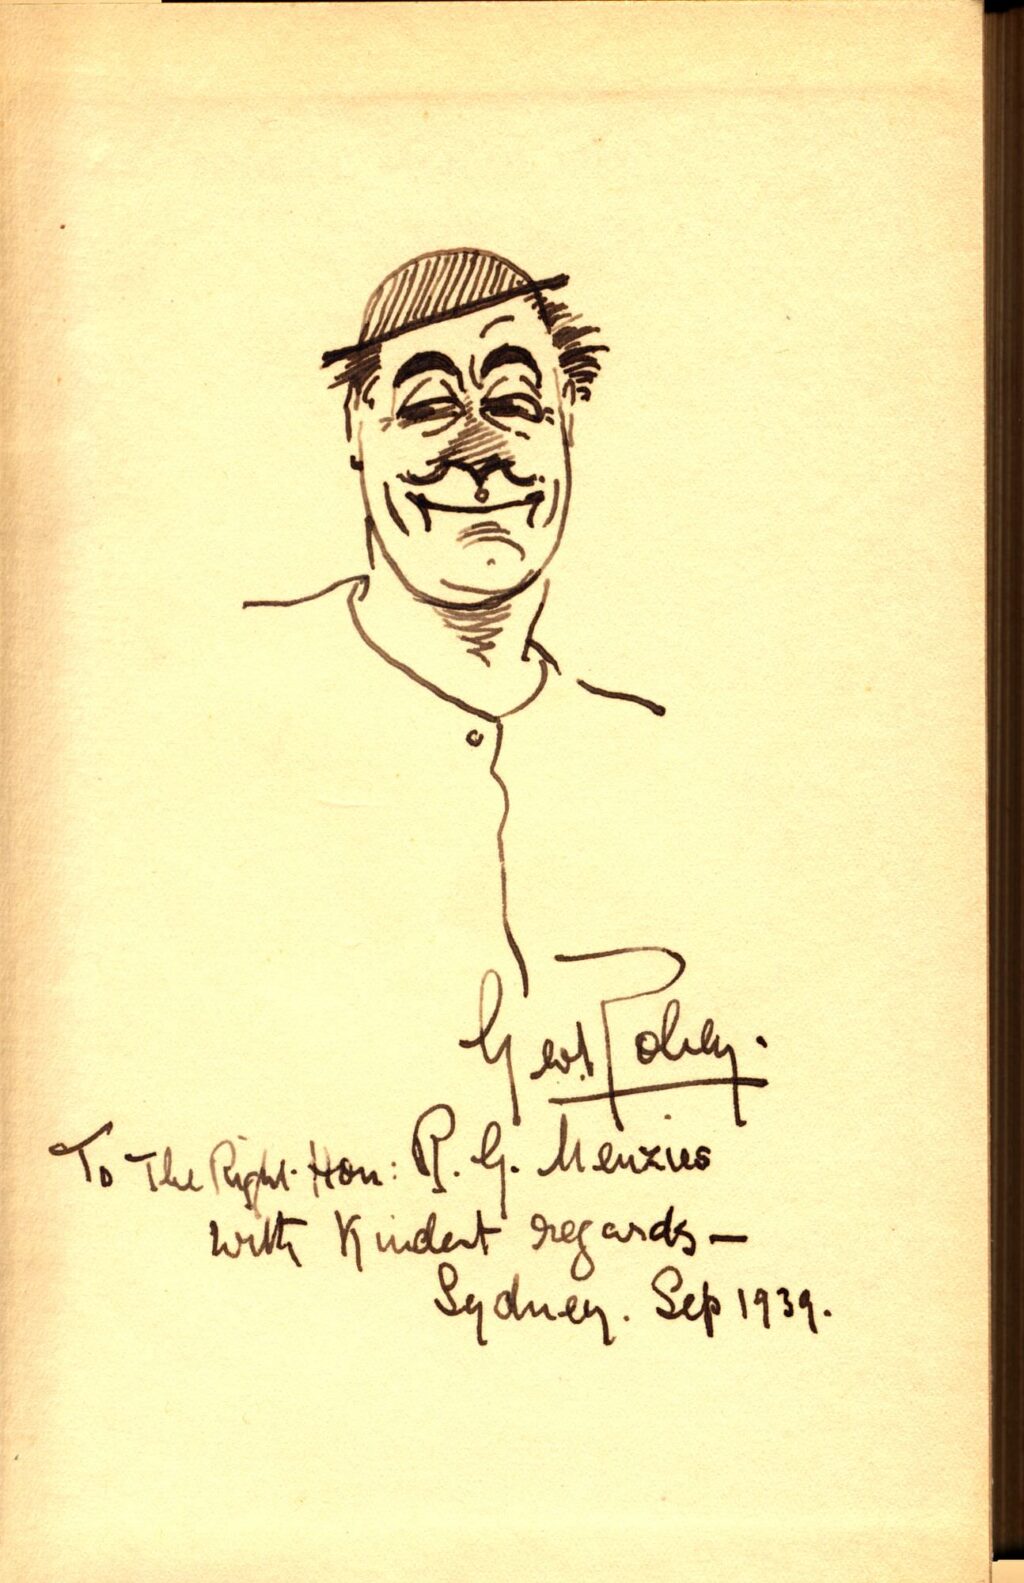 Geo. Robey.
To The Right Hon: R. G. Menzies
with Kindest regards —
Sydney. Sep 1939.